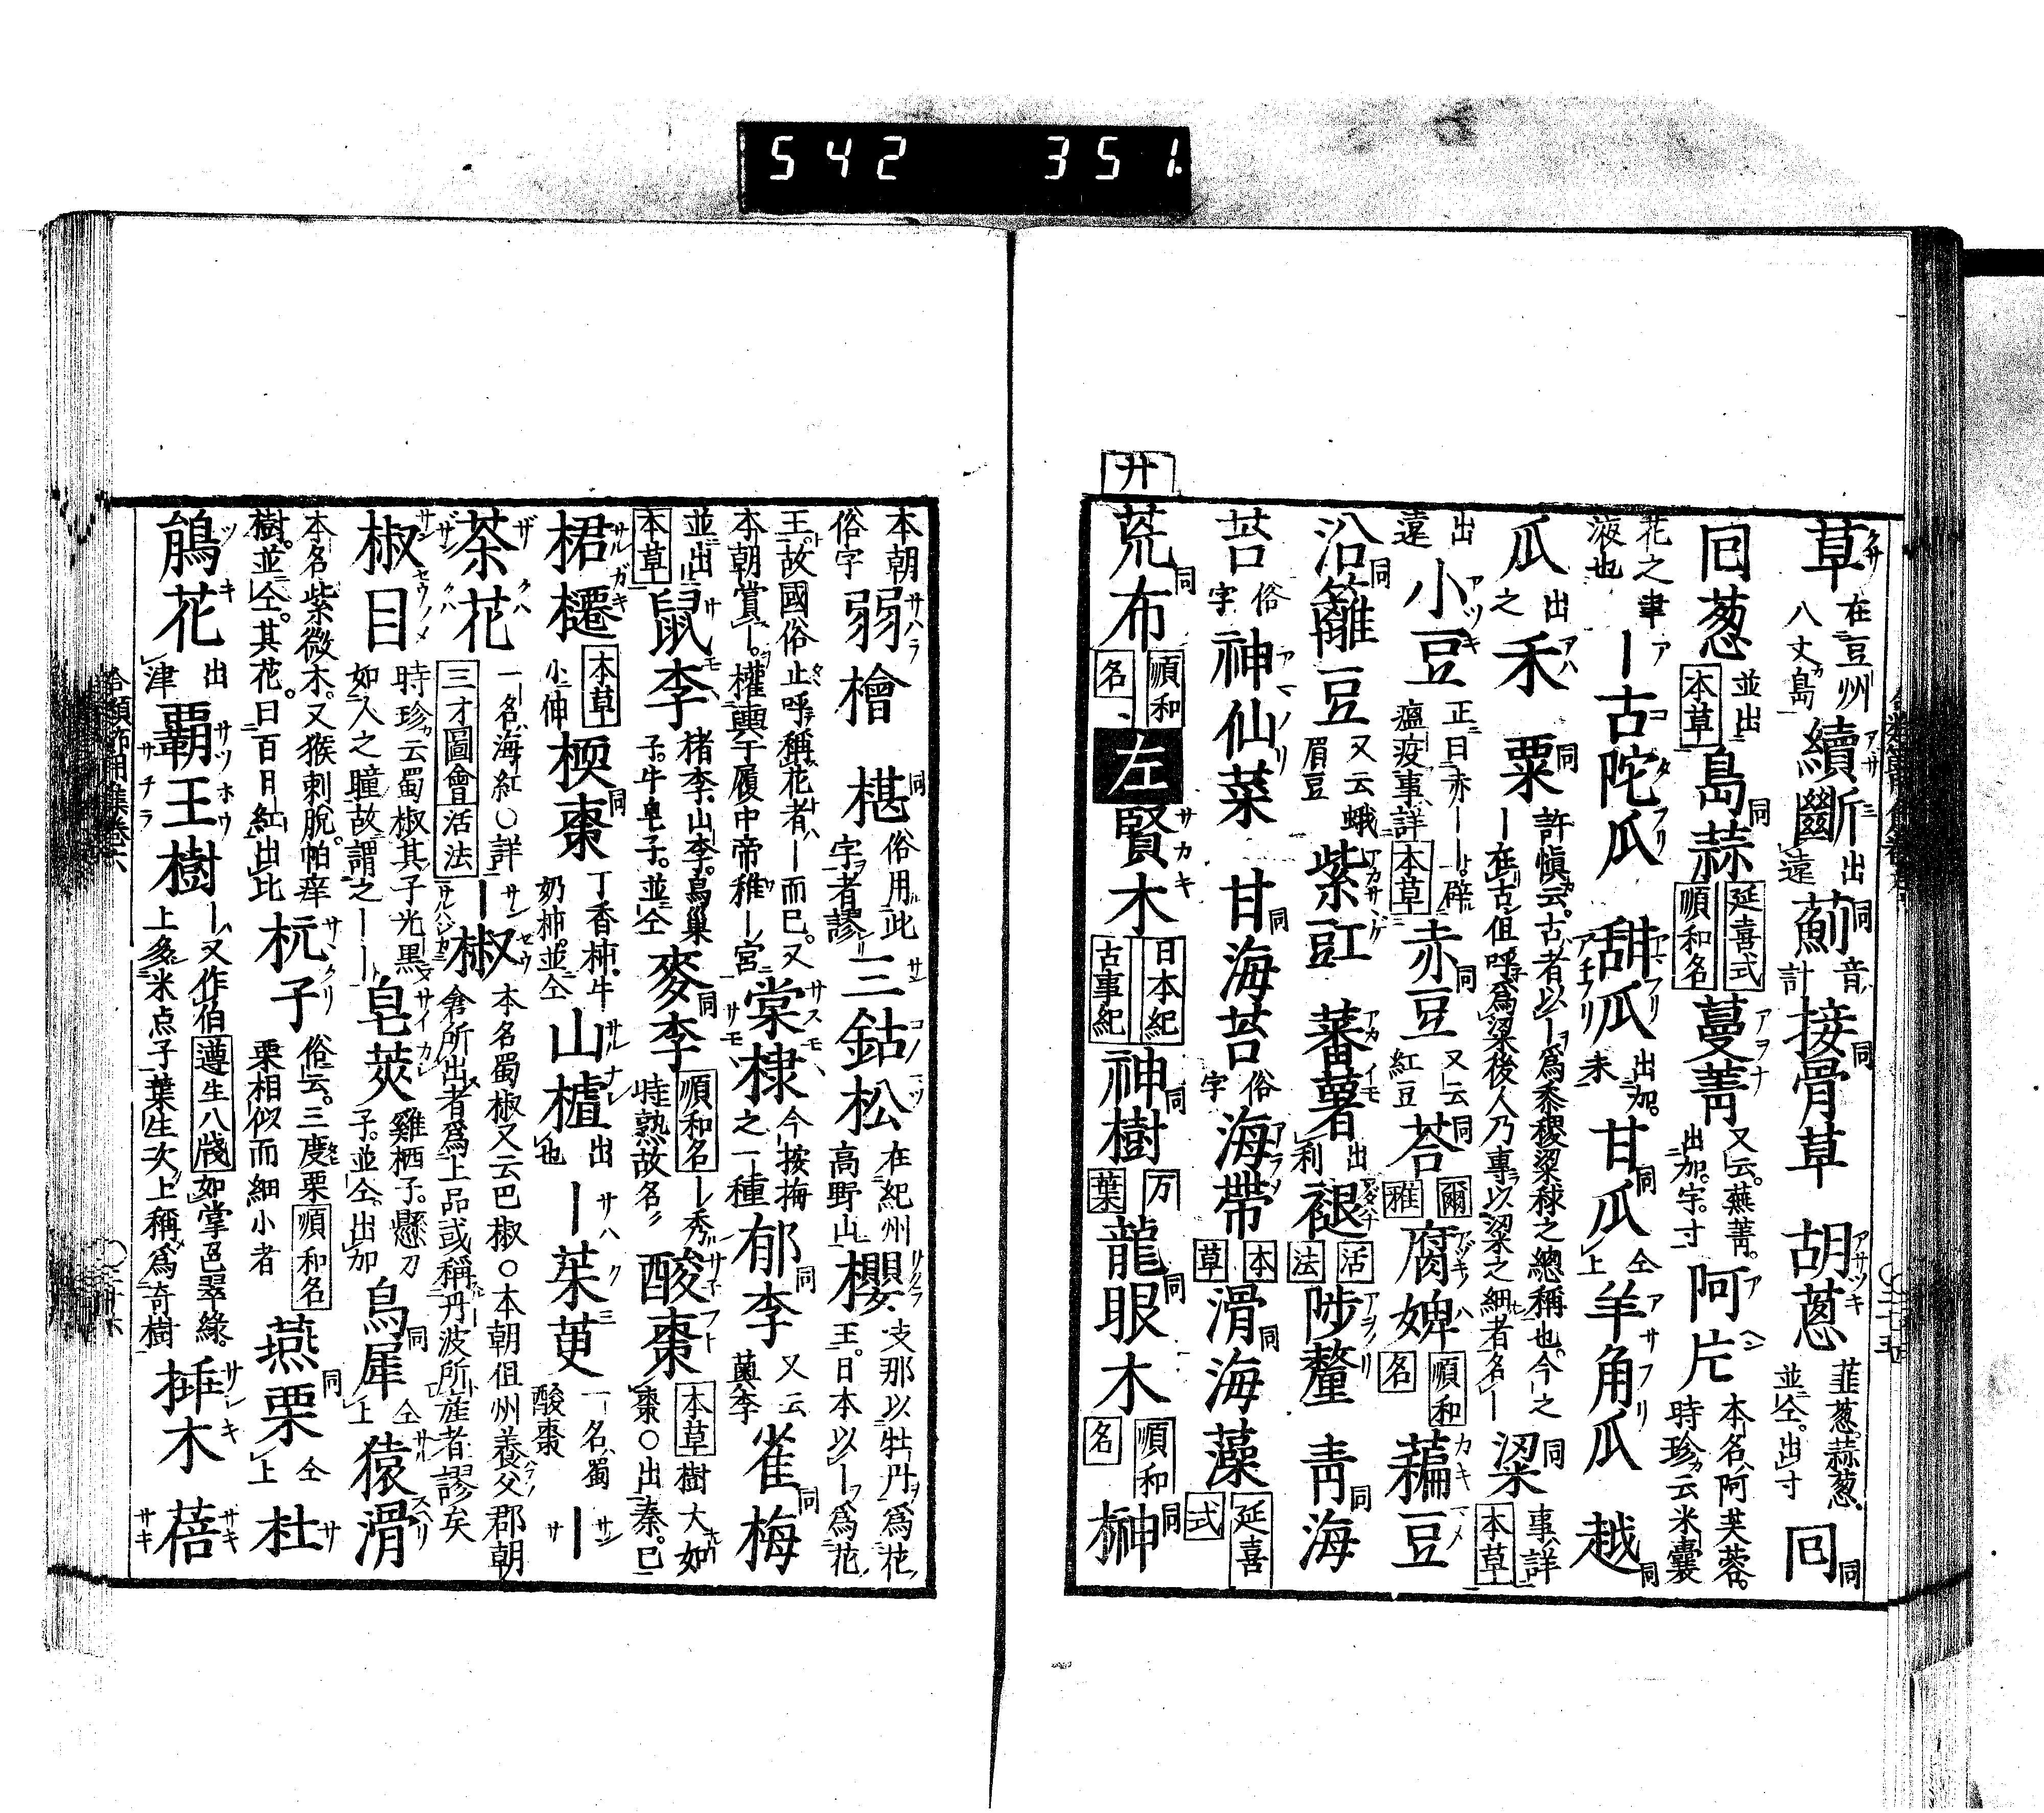 542 351.
草 在豆州八丈島 續斷 出遠 薊 同音計 接骨草 同 胡葱 韮葱蒜葱並仝出寸 同
囘葱 並出本草 島蒜 同 延喜式 順和名 蔓菁 又云蕪菁出加字寸 阿片 本名阿芙蓉時珍云米囊
花之津液也 ー古陀瓜 甜瓜 出加未 甘瓜 同仝上 羊角瓜 越 同
瓜 出之 禾 粟 同 許愼云古者以ー爲黍稷粱秫之總稱也今之ー在古但呼爲粱後人乃專以粱之細者名ー 粱 同 事詳本草
出遠 小豆 正曰赤ーー辟瘟疫事詳本草 赤豆 同 又云紅豆 荅 同 爾雅 腐婢 順和名 藊豆
沿籬豆 同 又云蛾眉豆 紫豇 蕃薯 出利 褪 活法 陟釐 青海 同
苔 俗字 神仙菜 甘海苔 同 俗字 海帶 本草 滑海藻 同 延喜式
荒布 同 順和名 左 賢木 日本紀 古事紀 神樹 同 万葉 龍眼木 同 順和名 榊 同
廾
本朝俗字 弱檜 椹 同 俗用此字者謬 三鈷松 在紀州高野山 櫻 支那以牡丹爲花王日本以ー爲花
王故國俗止呼稱花者ー而已又本朝賞ー權輿于履中帝稚ー宮 棠棣 今按梅之一種 郁李 同 又云薁李 雀梅 同
並出本草 鼠李 猪李山李烏巢子牛皂子並仝 麥李 同 順和名 ー秀時熟故名 酸棗 本草 樹大如棗○出秦巳
桾櫏 本草 小伸 梬棗 同 丁香柿牛奶柿並仝 山樝 出也 ー茱萸 一名蜀酸棗 ー
茶花 一名海紅○詳三才圖會活法 ー椒 本名蜀椒又云巴椒○本朝但州養父郡朝倉所出者爲上品或稱丹波所産者謬矣
椒目 時珍云蜀椒其子光黑如人之瞳故謂之ーー 皂莢 雞栖子懸刀子並仝出加 烏犀 同仝上 猿滑
本名紫微木又猴刺脫怕痒樹並仝其花曰百日紅出比 杬子 俗云三度栗 順和名 栗相似而細小者 燕栗 同仝上 杜
鵑花 出津 覇王樹 ー又作伯 遵生八牋 如掌色翠綠上多米点子葉生次上稱爲奇樹 㮔木 蓓